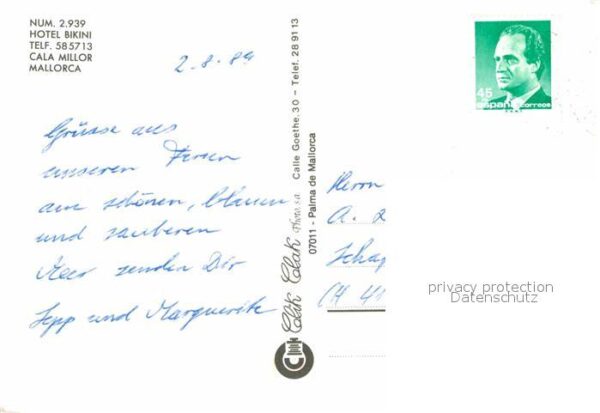 NUM. 2.939
HOTEL BIKINI
TELF. 585713
CALA MILLOR
MALLORCA
2.8.89
Grüsse aus
unseren Ferien
am schönen, blauen
und sauberen
Meer senden Dir
Sepp und Marguerite
Clik Clak Photo, s.a. Calle Goethe, 30 – Telef. 28 91 13
07011 - Palma de Mallorca
45
españa correos
Herrn
A.
CH 41
privacy protection
Datenschutz